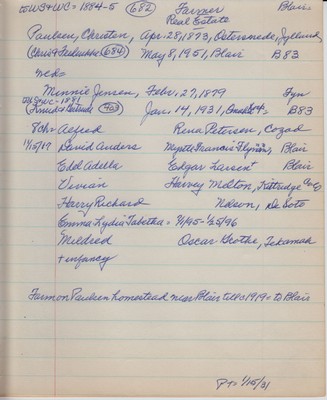 to WS+WC = 1884-5 (682) Farmer Blair
Real Estate
Paulsen, Christen, Apr. 28, 1873, Ostersmede, Jylland
(Chris & Frederikke (684) May 8, 1951, Blair B83
Med=
Minnie Jensen, Febr. 27, 1879 Fyn
1881
(Knud & Gertrude Jan. 14, 1931, B83
7Ch = Alfred Rena Petersen, Cozad
David Anders Myrtle Francis Blair
Edd Adella Edgar Larsen + Blair
Vivian Harvey Melton, Kittredge Colo
Harry Richard Nelson, De Soto
Emma Lydia Tabetha = 4/1/95 - 1/25/96
Mildred Oscar Grothe, Tekamah
+ infancy
Farm on Paulsen homestead near Blair till c 1919 = to Blair
P+ = 1/15/31